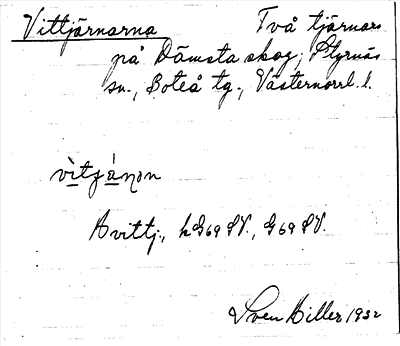 Vittjärnarna Två tjärnar
på Dämsta skog, Styrnäs
sn., Boteå tg., Västernorrl. l.
vìtjánon
Avittj., k G69 SV., G69 SV.
Sven Hiller 1932